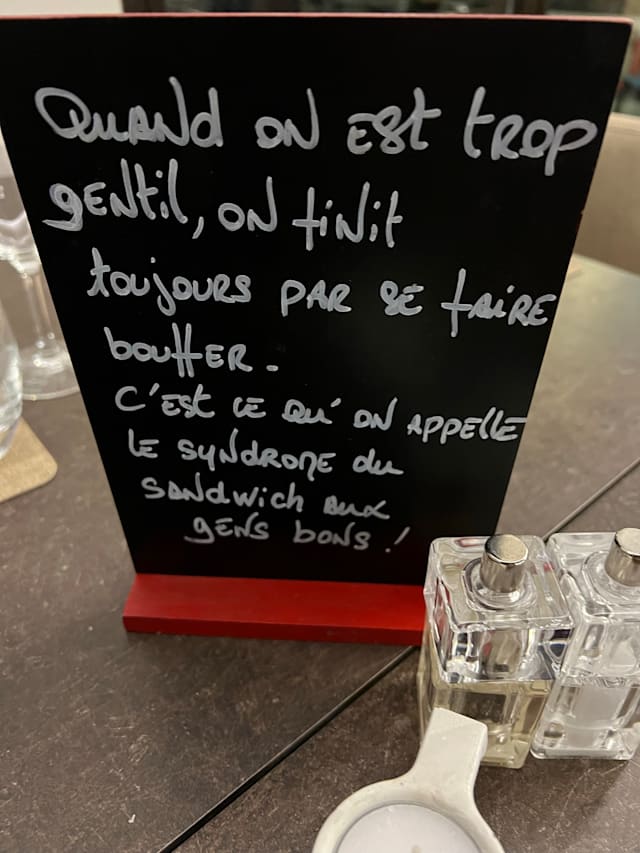 Quand on est trop
gentil, on finit
toujours par se faire
bouffer.
C'est ce qu'on appelle
le syndrome du
sandwich aux
gens bons !